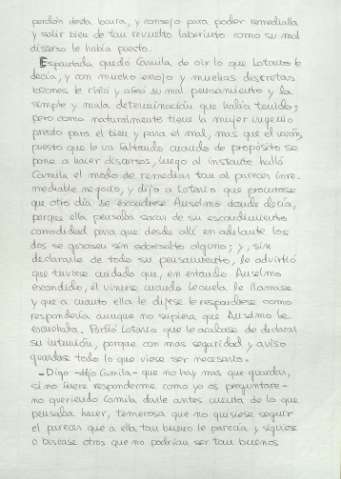 perdón desta locura, y consejo para poder remedialla
y salir bien de tan revuelto laberinto como su mal
discurso le había puesto.
Espantada quedó Camila de oír lo que Lotario le
decía, y con mucho enojo y muchas discretas
razones le riñó y afeó su mal pensamiento y la
simple y mala determinación que había tenido;
pero como naturalmente tiene la mujer ingenio
presto para el bien y para el mal, más que el varón,
puesto que le va faltando cuando de propósito se
pone a hacer discursos, luego al instante halló
Camila el modo de remediar tan al parecer inre-
mediable negocio, y dijo a Lotario que procurase
que otro día se escondiese Anselmo donde decía,
porque ella pensaba sacar de su escondimiento
comodidad para que desde allí en adelante los
dos se gozasen sin sobresalto alguno; y, sin
declararle de todo su pensamiento, le advirtió
que tuviese cuidado que, en estando Anselmo
escondido, él viniese cuando Leonela le llamase
y que a cuanto ella le dijese le respondiese como
respondería aunque no supiera que Anselmo le
escuchaba. Porfió Lotario que le acabase de declarar
su intención, porque con más seguridad y aviso
guardase todo lo que viese ser necesario.
-Digo -dijo Camila- que no hay más que guardar,
si no fuere responderme como yo os preguntare-
no queriendo Camila darle antes cuenta de lo que
pensaba hacer, temerosa que no quisiese seguir
el parecer que a ella tan bueno le parecía y siguiese
o buscase otros que no podrían ser tan buenos